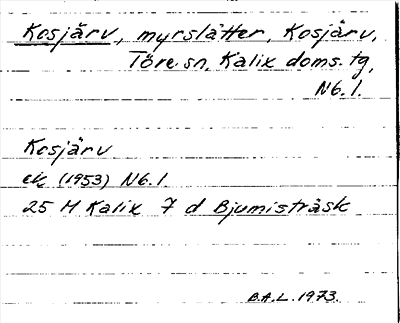 Kosjärv, myrslåtter, Kosjärv,
Töre sn, Kalix doms. tg,
N6.1.
Kosjärv
ek (1953) N6.1
25 M Kalix 7 d Bjumisträsk
B.A.L. 1973.